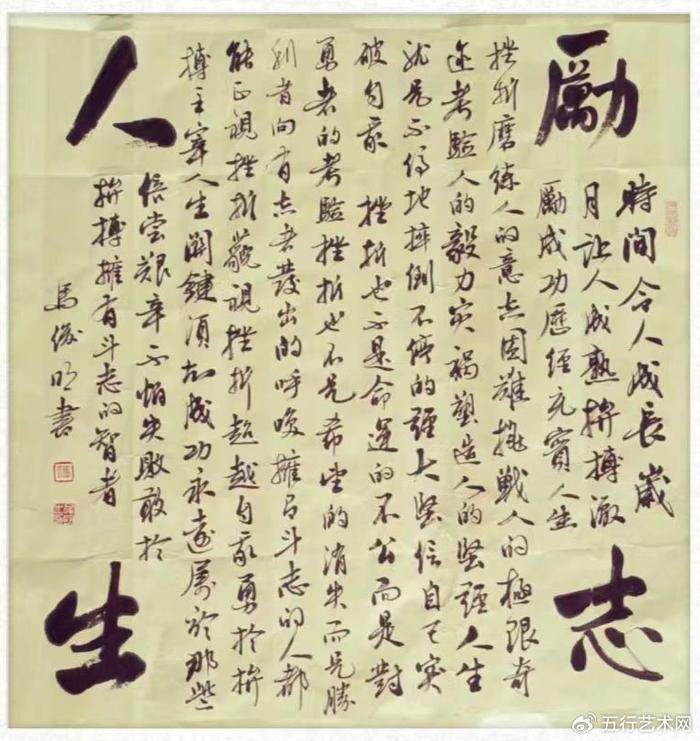 勵志
人生
時間令人成長歲
月讓人成熟拚搏激
勵成功歷經充實人生
挫折磨練人的意志困難挑戰人的極限奇
迹考驗人的毅力灾禍塑造人的堅強人生
就是不停地摔倒不停的強大堅信自己突
破自我 挫折也不是命運的不公而是對
勇者的考驗挫折也不是希望的消失而是勝
利者向有志者發出的呼喚擁有斗志的人都
能正視挫折藐視挫折超越自我勇於拚
搏主宰人生關鍵須知成功永遠屬於那些
倍嘗艱辛不怕失敗敢於
拚搏擁有斗志的智者
馬俊明書
@五行艺术网